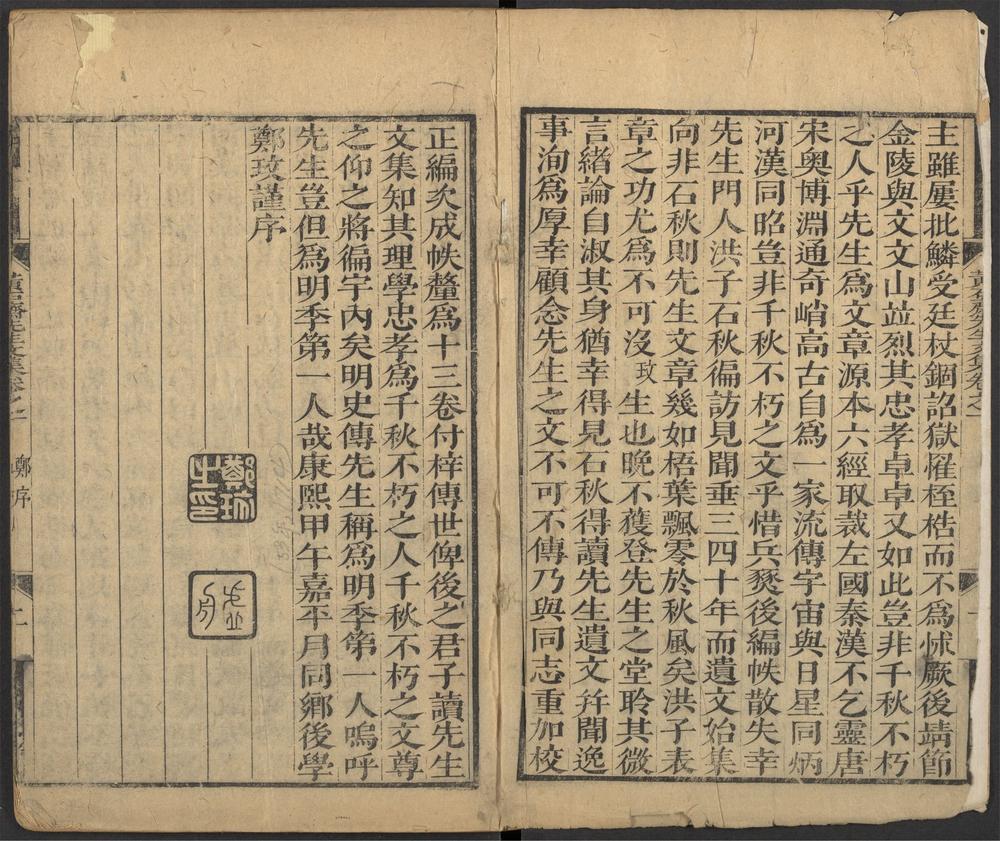 主雖屢批鱗受廷杖錮詔獄罹桎梏而不爲怵厥後靖節
金陵與文文山並烈其忠孝卓卓又如此豈非千秋不朽
之人乎先生爲文章源本六經取裁左國秦漢不乞靈唐
宋奥博淵通奇峭高古自爲一家流傳宇宙與日星同炳
河漢同昭豈非千秋不朽之文乎惜兵燹後編帙散失幸
先生門人洪子石秋徧訪見聞垂三四十年而遺文始集
向非石秋則先生文章幾如梧葉飄零於秋風矣洪子表
章之功尤爲不可沒玫生也晚不獲登先生之堂聆其微
言緒論自淑其身猶幸得見石秋得讀先生遺文幷聞逸
事洵爲厚幸顧念先生之文不可不傳乃與同志重加校
正編次成帙釐爲十三卷付梓傳世俾後之君子讀先生
文集知其理學忠孝爲千秋不朽之人千秋不朽之文尊
之仰之將徧宇內矣明史傳先生稱爲明季第一人嗚呼
先生豈但爲明季第一人哉康熙甲午嘉平月同鄉後學
鄭玫謹序
鄭玫之印
黃石齋先生集卷之一
鄭序
二